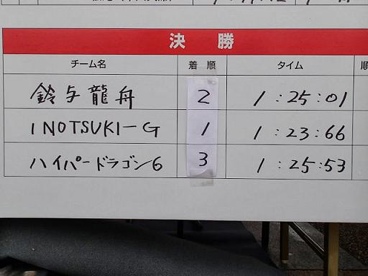 決勝
チーム名 着順 タイム 順
鈴与龍舟 2 1:25:01
INOTSUKI-G 1 1:23:66
ハイパードラゴン6 3 1:25:53